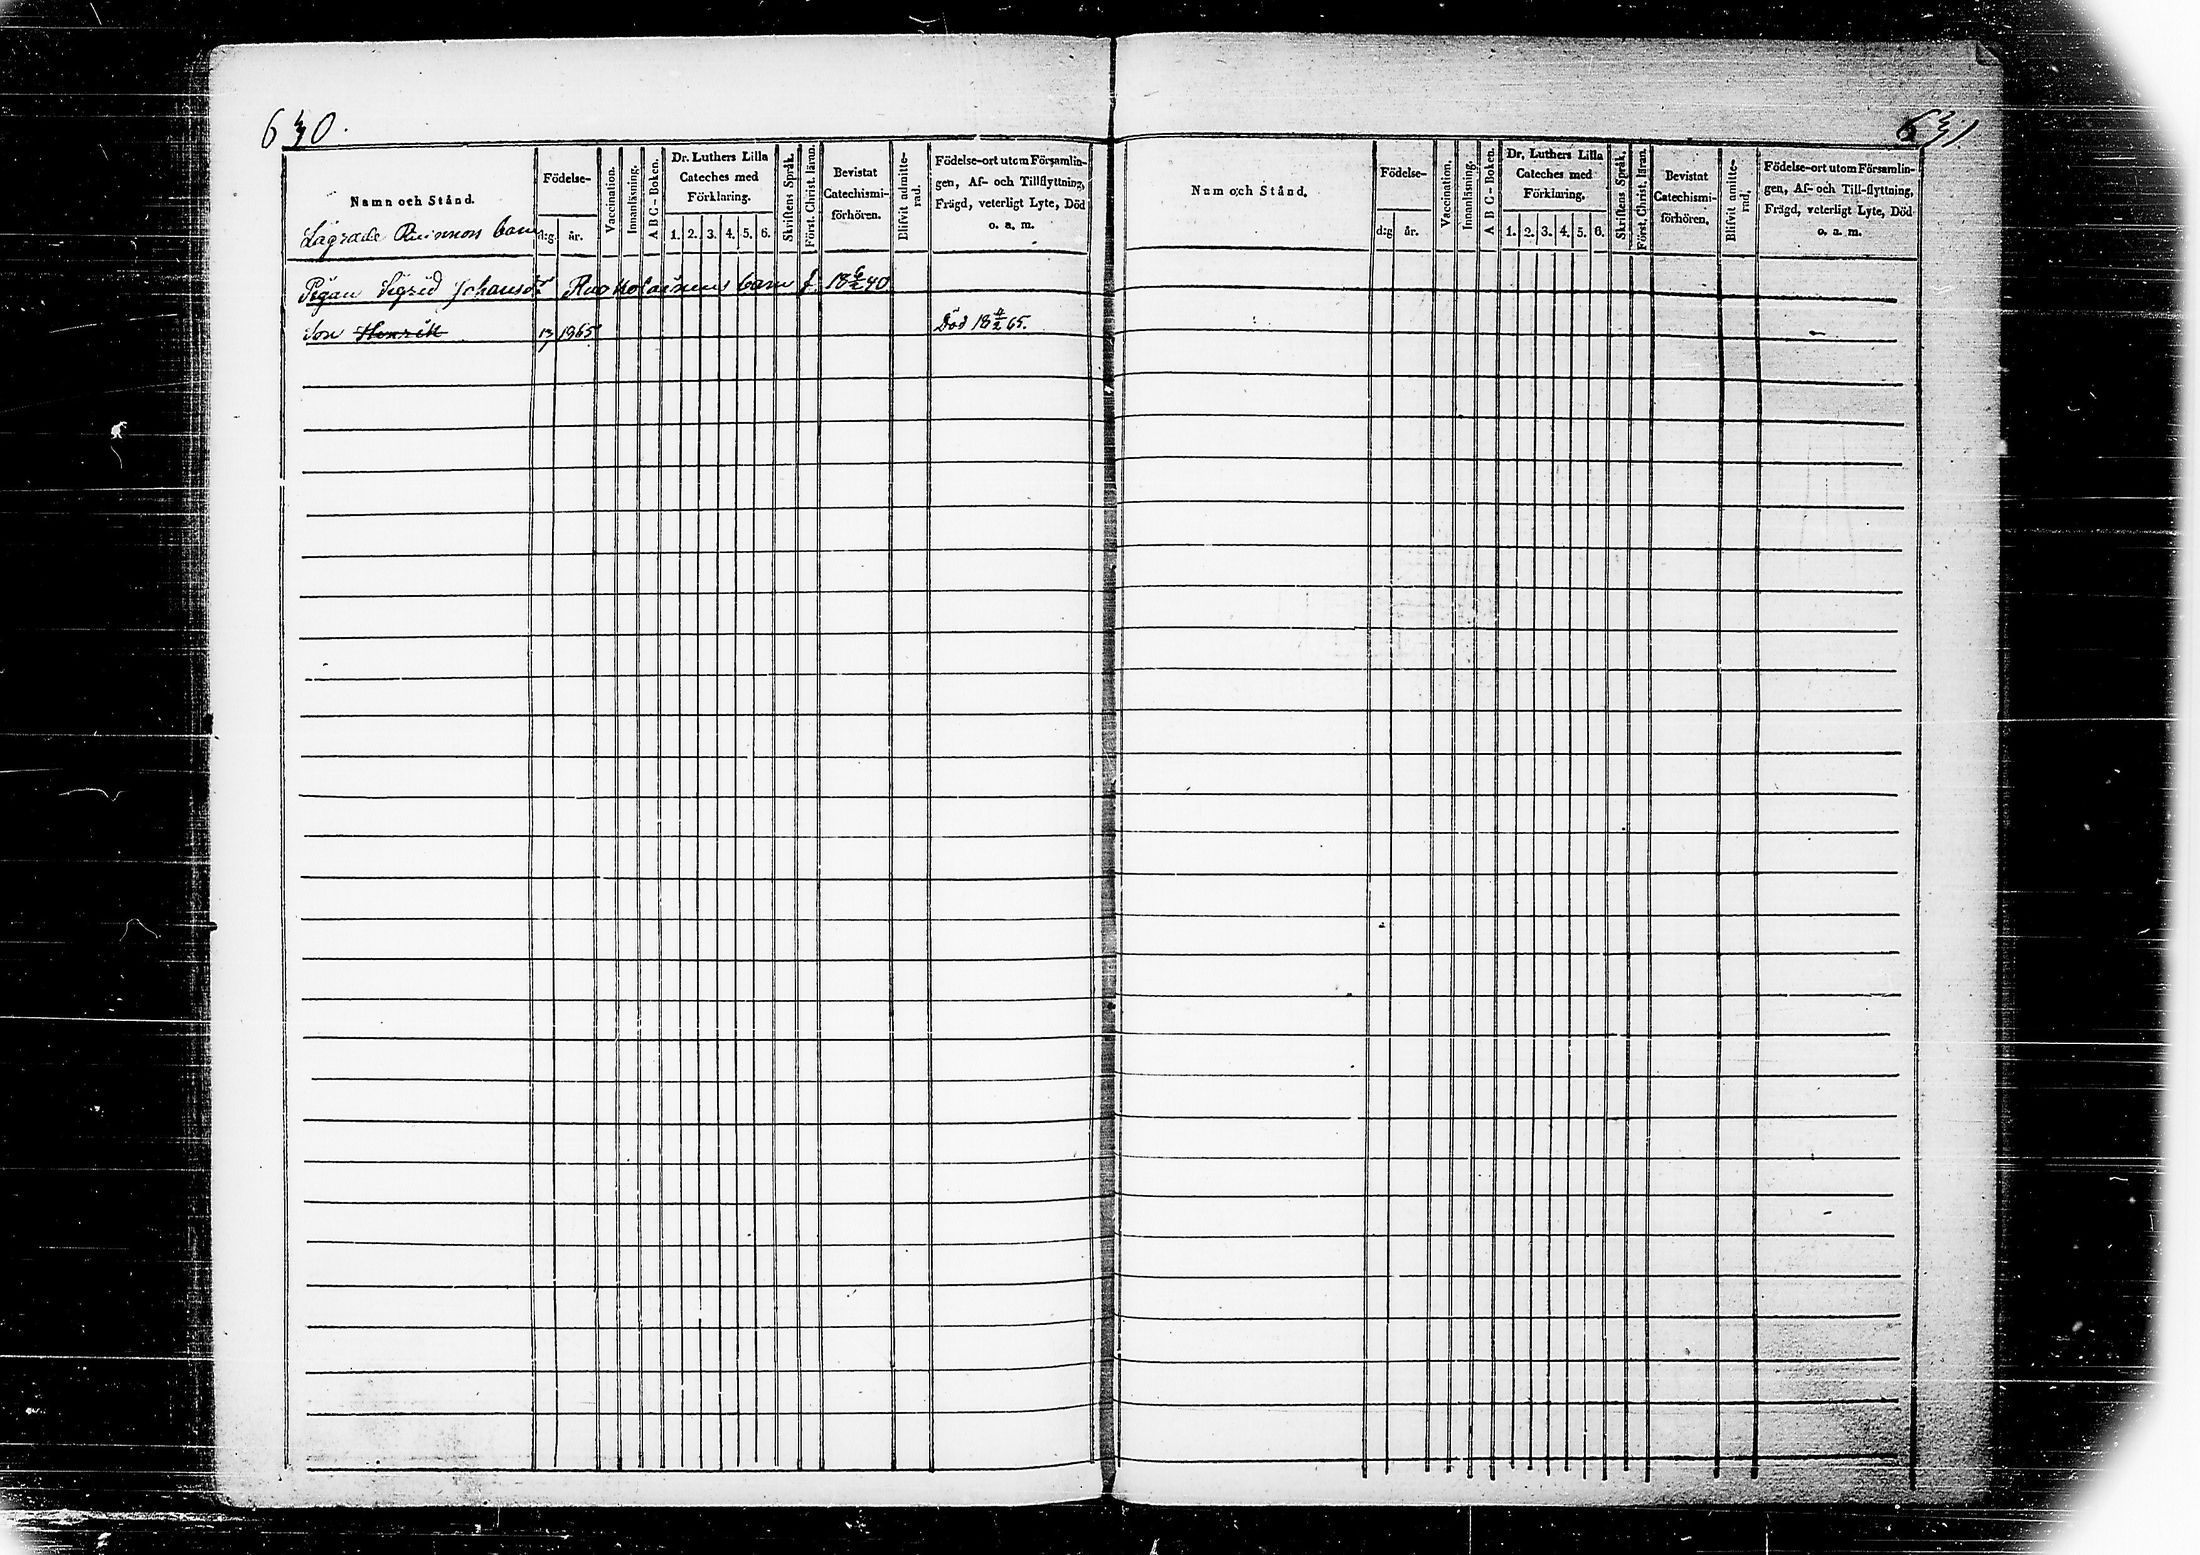 630.
Namn och Stånd.
Födelse-
d:g
år.
Vaccination.
Innanläsning.
A B C - Boken.
Dr. Luthers Lilla
Cateches med
Förklaring.
1. 2. 3. 4. 5. 6.
Skriftens Språk.
Först. Christ. läran.
Bevistat
Catechismi-
förhören.
Blifvit admitte-
rad.
Födelse-ort utom Församlin-
gen, Af- och Tillflyttning,
Frägd, veterligt Lyte, Död
o. a. m.
Lägrade Qvinnors barn
Pigan Sigrid Johansdr barn f. 18 6/2 40
Son Henrik 1965 Död 18 65.
631
Nam och Stånd.
Födelse-
d:g
år.
Vaccination.
Innanläsning.
A B C - Boken.
Dr. Luthers Lilla
Cateches med
Förklaring.
1. 2. 3. 4. 5. 6.
Skriftens Språk.
Först. Christ. läran.
Bevistat
Catechismi-
förhören.
Blifvit admitte-
rad,
Födelse-ort utom Församlin-
gen, Af- och Till-flyttning,
Frägd, veterligt Lyte, Död
o. a. m.